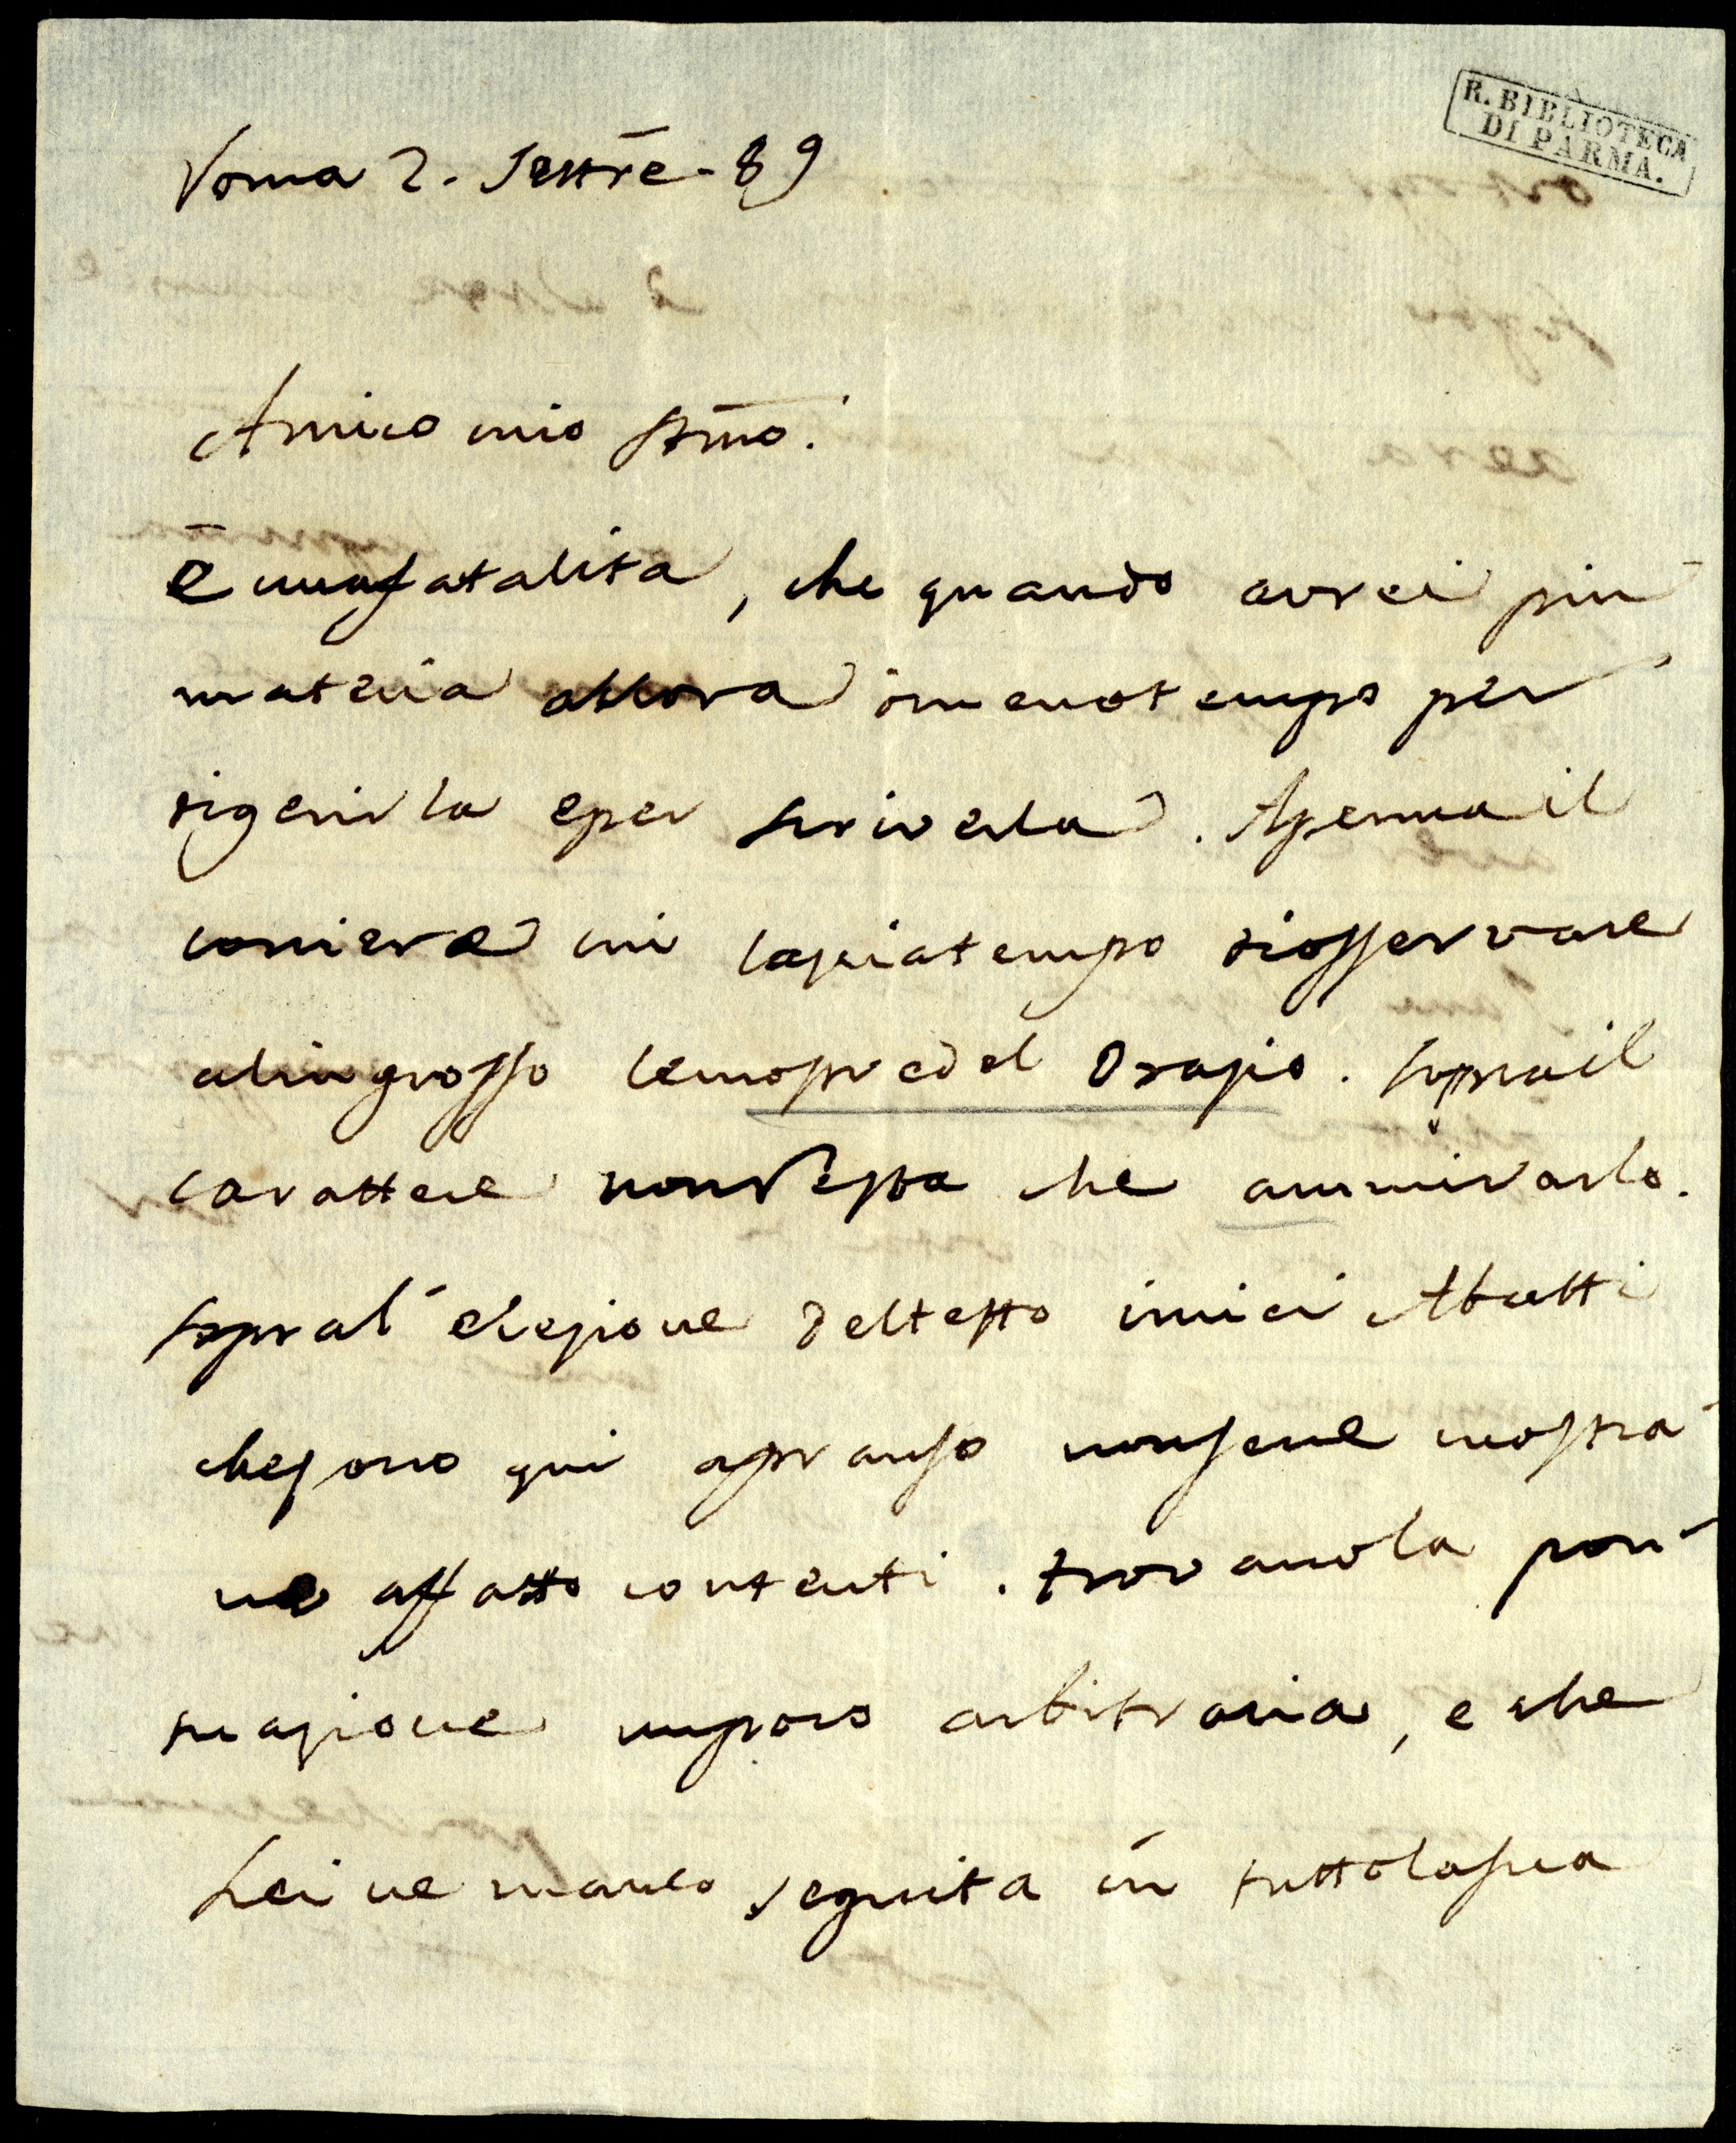 R. BIBLIOTECA
DI PARMA.
Roma 2. Settr̄e. 89
Amico mio Stimo.
È una fatalità, che quando avrei più
materia allora ò meno tempo per
digerirla e per scriverla. Apenna il
corriere mi lascia tempo di osservare
al in grosso le nuopre del Orazio. Sopra il
carattere non resta che ammirarlo.
sopra l'elezione del testo i miei Abatti
che sono qui a pranso non sene mostra-
no affatto contenti. trovano la pon-
tuazione un poco arbitraria, e che
Lei ne manco seguita in tutto la sua